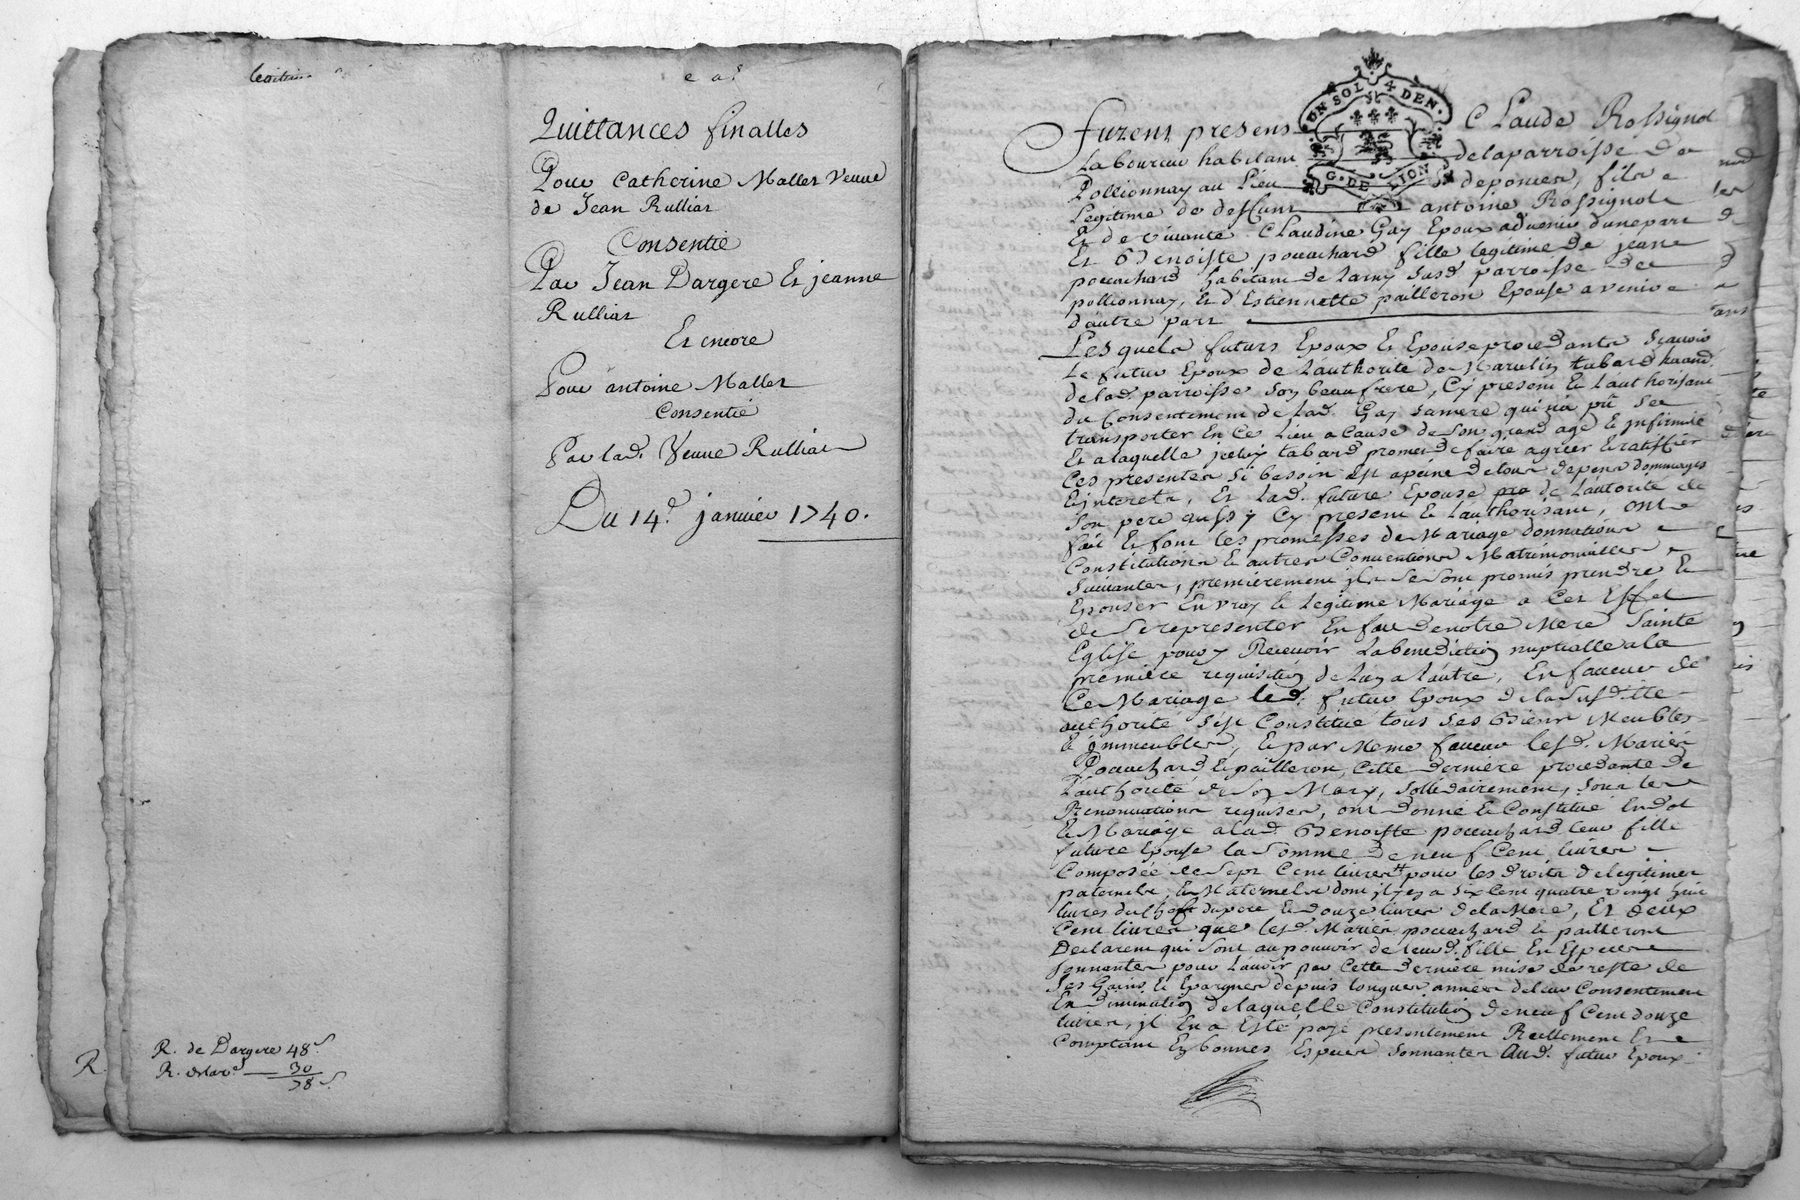 Quittances finalles
Pour Catherine Mallet Veuve
de Jean Rulliat
Consentie
Par Jean Dargere Et jeanne
Rulliat
Et encore
Pour antoine Mallet
Consentie
Par lad. Veuve Rulliat
Du 14e. janvier 1740.
R. de Dargere 48s.
R. 30
78s.
R.
UN SOL 4 DEN.
G. DE LION
Furent presens Claude Rossignol
Laboureur habitant de la parroisse de
Pollionnay au Lieu fils
Legitime de deffunt antoine Rossignol
Et de vivante Claudine Gay Epoux advenir d'une part
Et Benoiste pouchard fille legitime de jean
habitant de parroisse de
pollionnay, Et d'Estiennette pailleron Epouse avenir
d'autre part
Lesquels futurs Epoux Et Epouse procedants scavoir
Le futur Epoux de L'authorité de tabard
de lad. parroisse son beaufrere, Cy present Et L'authorisant
du Consentement de Lad. Gay sa mere qui n'a pû se
transporter En ce Lieu a cause de son grand age Et infirmité
Et a laquelle tabard promet de faire agreer Et ratiffier
Ces presentes Si besoin Est a peine de tous depens dommages
Et interets, Et Lad. future Epouse de L'autorité de
Son pere aussy Cy present Et L'authorisant, ont
fait Et font les promesses de Mariage donnations
Constitutions Et autres Conventions Matrimonialles
Suivantes, premierement ils se sont promis prendre Et
Epouser En vray Et Legitime Mariage a Cet Effet
de Se representer En face de notre Mere Sainte
Eglise pour y Recevoir La benediction nuptialle a la
premiere requisition de L'un a l'autre, En faveur de
Ce Mariage led. futur Epoux de la susditte
authorité s'est Constitué tous ses Biens Meubles
Et immeubles, Et par Meme faveur lesd. Mariés
Et pailleron, Cette derniere procedante de
L'authorité de son Mary, sollidairement, sous les
Renonciations requises, ont donné Et Constitué En dot
Et Mariage a lad. Benoiste leur fille
future Epouse la Somme de neuf Cent livres
Composée de Sept Cent livres pour les droits de legitimes
paternels Et Maternels dont il y en a six Cent quatre vingt huit
livres du Chef du pere Et douze livres de la Mere, Et deux
Cent livres que lesd. Mariés Et pailleron
Declarent qui sont au pouvoir de leurd. fille En Especes
sonnantes pour L'avoir par Cette derniere mise de reste de
Ses Gains Et Epargnes depuis longues années de leur Consentement
En diminution de laquelle Constitution de neuf Cent douze
livres, il En a Esté payé presentement Reellement Et
Comptant En bonnes Especes Sonnantes Aud. futur Epoux